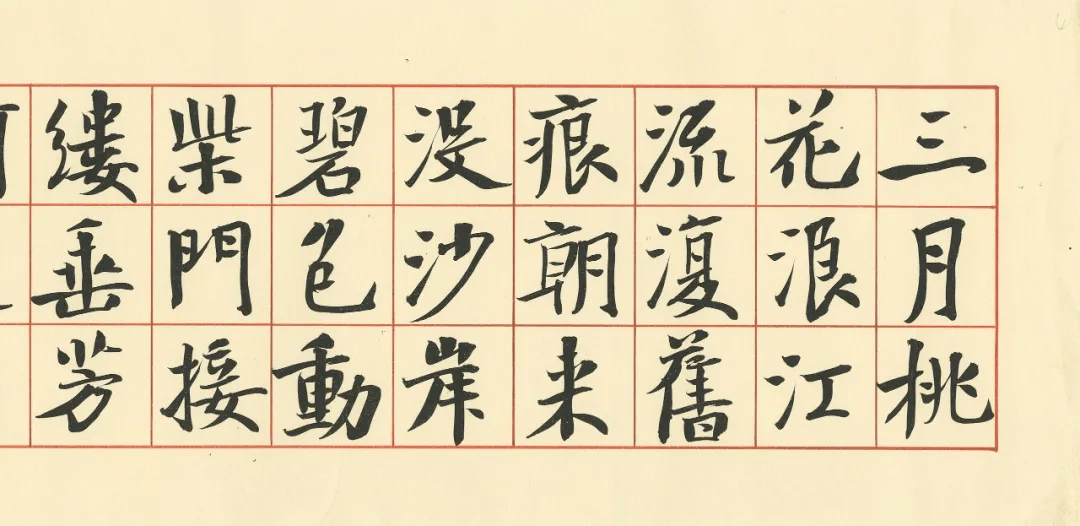 三月桃
花浪江
流復舊
痕朝来
没沙岸
碧色動
柴門接
縷垂芳